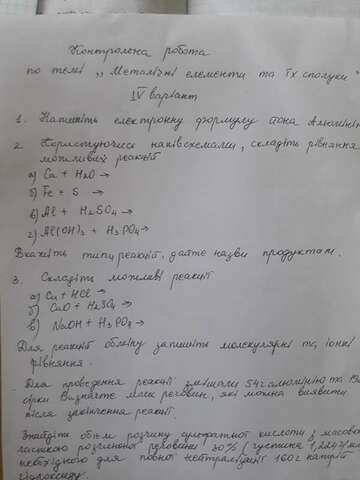 Контрольна робота
по темі „Металічні елементи та їх сполуки"
IV варіант
1. Напишіть електронну формулу йона Алюмінію
2. Користуючись напівсхемами, складіть рівняння
можливих реакцій
а) Ca + H2O →
б) Fe + S →
в) Al + H2SO4 →
г) Al(OH)3 + H3PO4 →
Вкажіть типи реакцій, дайте назви продуктам.
3. Складіть можливі реакції
а) Cu + HCl →
б) CaO + H2SO4 →
в) NaOH + H3PO4 →
Для реакції обміну запишіть молекулярні та іонні
рівняння.
Для проведення реакції змішали 54г алюмінію та
сірки Визначте маси речовин, які можна виявити
після закінчення реакції.
Знайдіть об'єм розчину сульфатної кислоти з масовою
часткою розчиненої речовини 30% (густина
необхідного для повної нейтралізації 160г натрій
гідроксиду.